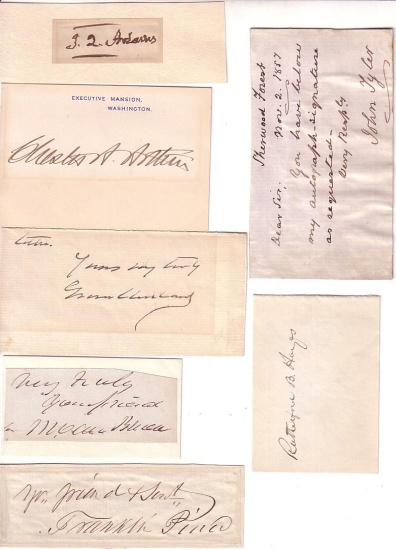 J. Q. Adams
EXECUTIVE MANSION,
WASHINGTON.
Chester A. Arthur
Yours very truly
Grover Cleveland
Very truly
Your friend
Yr. friend & Servt
Franklin Pierce
Sherwood Forest
Nov. 2. 1857
Dear Sir:
You have below
my autograph-signature
as requested-
Very Resply
John Tyler
Rutherford B. Hayes